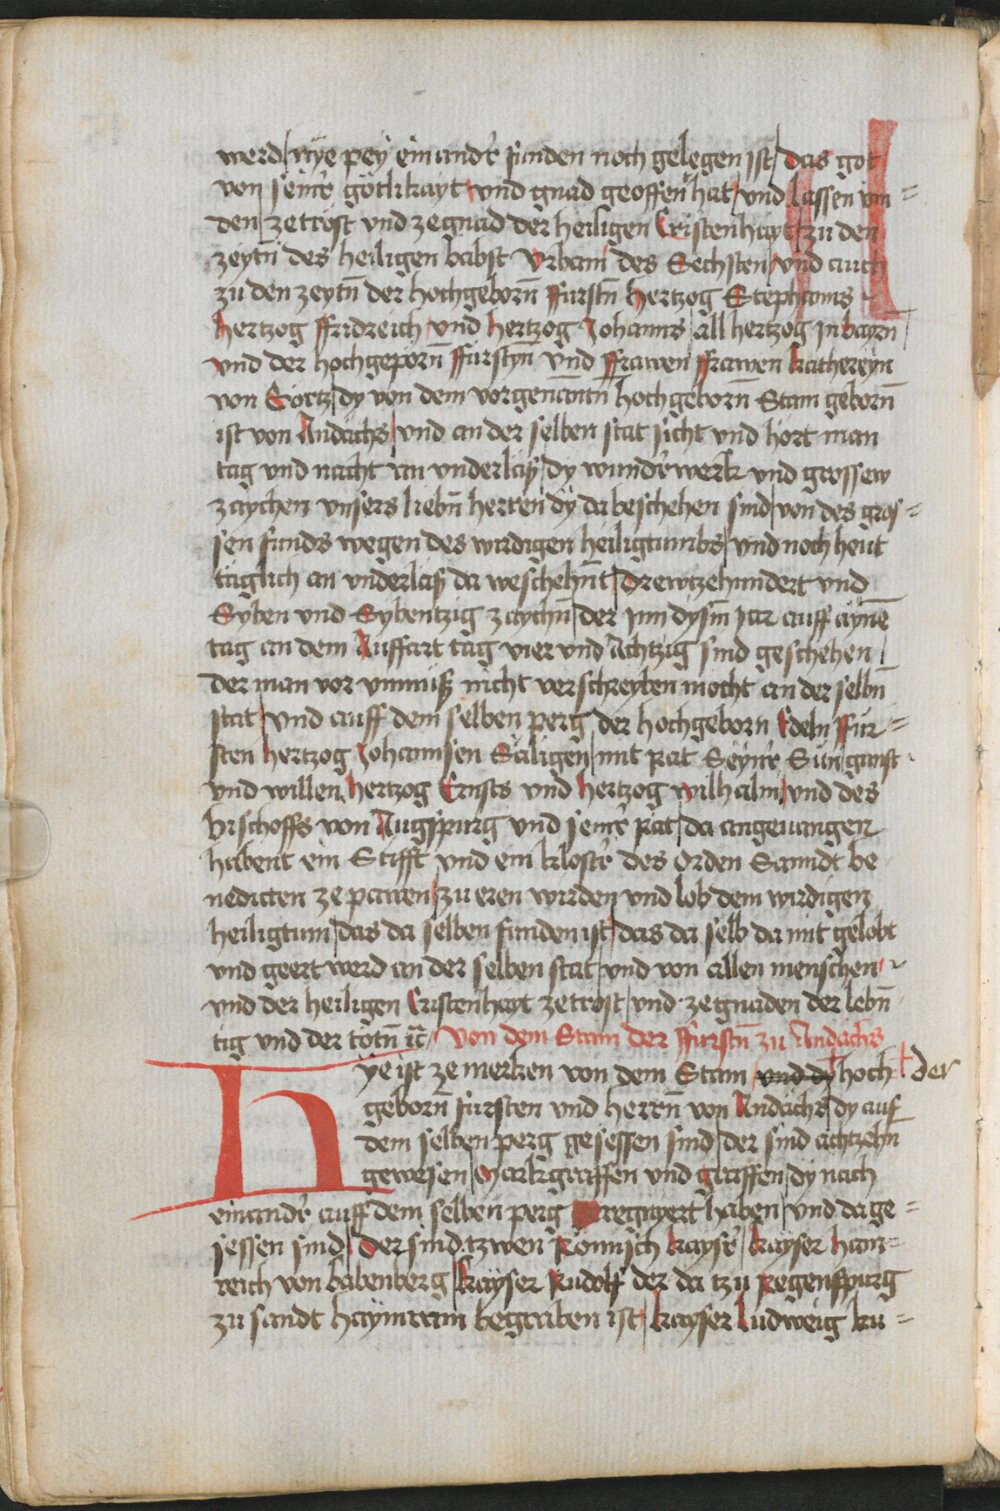 werd / wye pey einandr̃ funden noch gelegen ist / das got
von seinr̃ götlikayt vnd gnad geoffen̄t hat / vnd lassen vin=
den / ze trost vnd ze gnad der heiligen Cristenhayt / zu den
zeytn̄ des heiligen babst Vrbani des Sechsten / vnd auch
zu den zeytn̄ der hochgeborn̄ ffurstn̄ hertzog Stephanns
hertzog ffridreich vnd hertzog Johanns all hertzog jn bayrn̄
vnd der hochgeporn̄ ffurstyn̄ vnd ffrawen ffrawen kathereyn
von Görtz / dy von dem vorgenantn̄ hochgeborn̄ Stam geborn̄
ist von Andachs / vnd an der selben stat sicht vnd hört man
tag vnd nacht an vnderlaß / dy wundr̃werk vnd grossew
zaychen vnsers liebn̄ herren dy da beschehen sind / von des gros=
sen funds wegen des wirdigen heiligtumbs / vnd noch heut
täglich an vnderlaß da weschehn̄t / drewtzehundert vnd
Syben vnd Sybentzig zaychn̄ / der jnn dysm̄ Jar auff aynē
tag an dem Auffart tag vier vnd Achtzig sind geschehen /
der man vor vnmuß nicht verschreyben mocht an der selbn̄
stat / vnd auff dem selben perg der hochgeborn Edeln ffür=
sten hertzog Johannsen Säligen / mit rat Seynr̃ Sün gunst
vnd willen hertzog Ernsts vnd hertzog wilhalm / vnd des
bischoffs von Augspurg vnd seinr̃ rat / da angeuangen
habent ein Stifft vnd ein klostr̃ des Orden Sanndt be
nedicten ze pawen / zu eren wirden vnd lob dem wirdigen
heiligtum / das da selben funden ist / das da selb da mit gelobt
vnd geert werd an der selben stat / vnd von allen menschen
vnd der heiligen Cristenhayt ze trost / vnd ze gnaden der lebn̄
tig vnd der totn̄ ꝛc̄ / von dem Stam der ffurstn̄ zu Andachs
Hye ist ze merken von dem Stam vnd dy hoch + der
geborn̄ fursten vnd herrn̄ von Andachs / dy auf
dem selben perg gesessen sind / der sind achtzehn̄
gewesen / Markgraffen vnd graffen / dy nach
einandr̃ auff dem selben perg regnyert haben / vnd da ge=
sessen sind / der sind tzwen Römisch kaysr̃ / kayser Hain=
reich von babenberg / kayser Rudolf der da tzu Regenspurg
zu sandt haymram begraben ist / kayser ludweig ku=